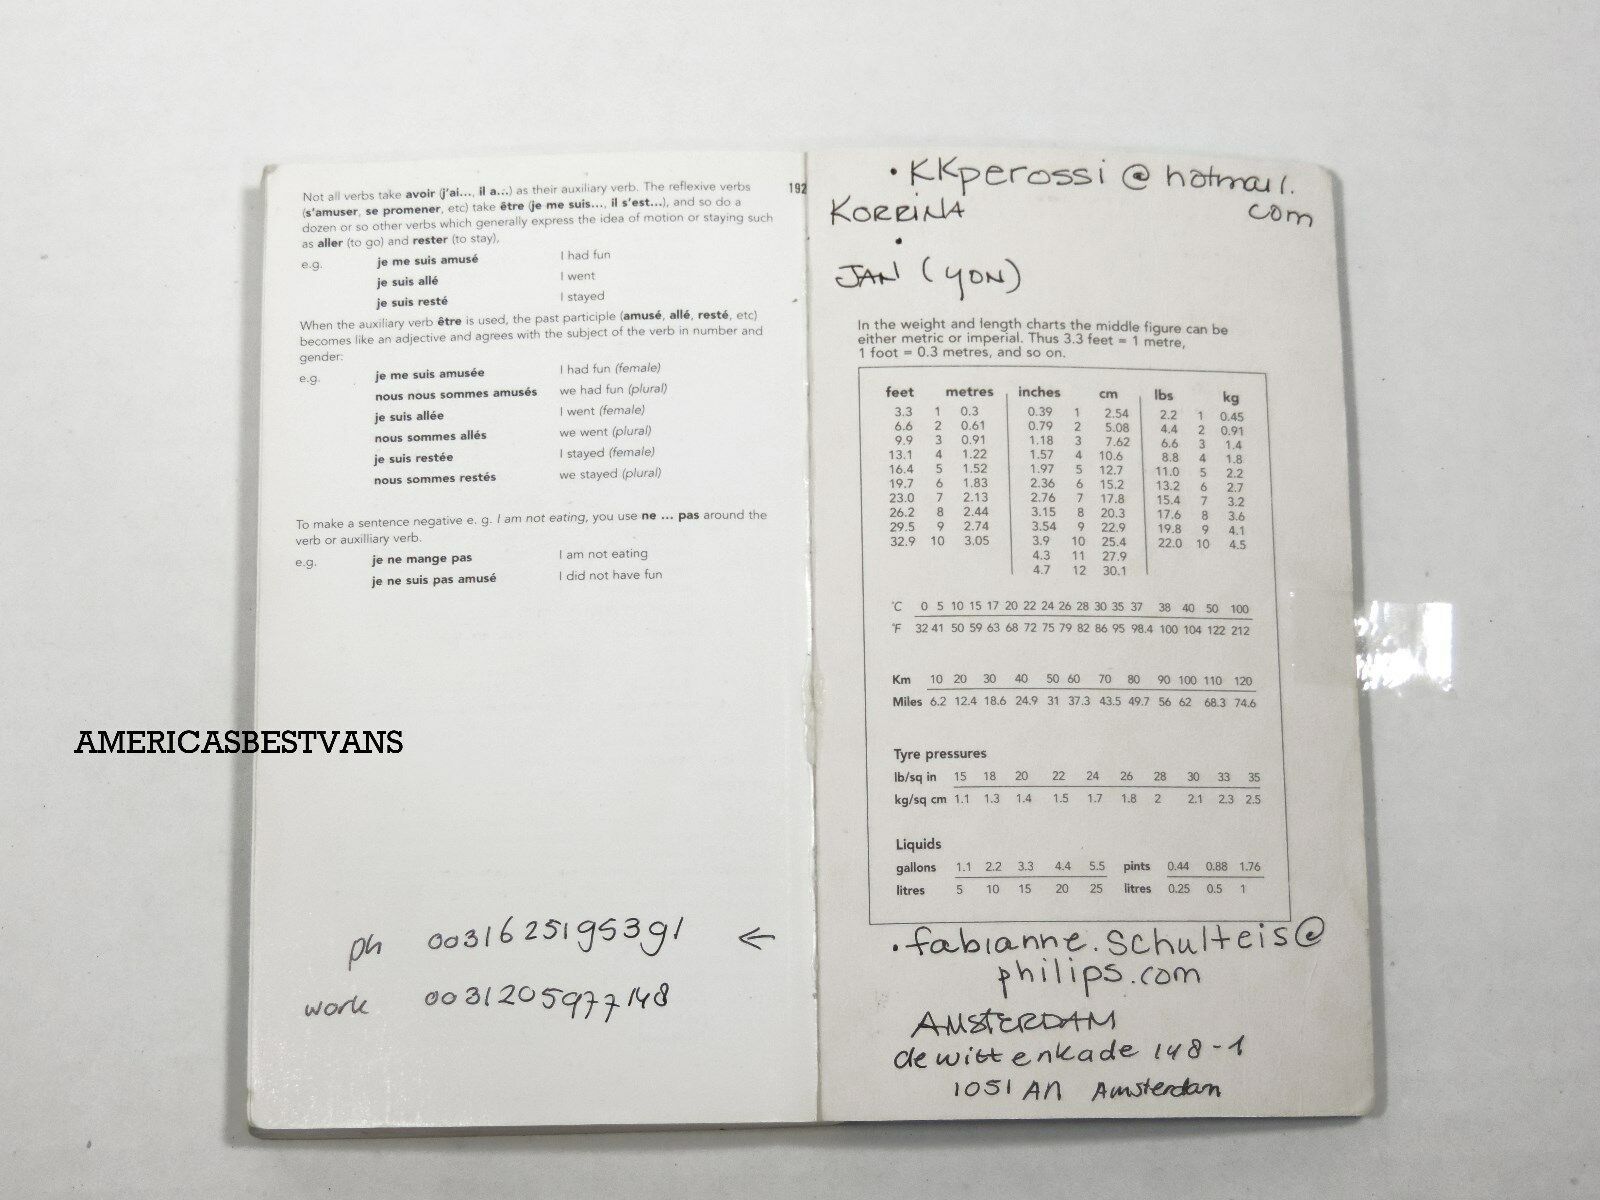 Not all verbs take avoir (j'ai..., il a...) as their auxiliary verb. The reflexive verbs
(s'amuser, se promener, etc) take être (je me suis..., il s'est...), and so do a
dozen or so other verbs which generally express the idea of motion or staying such
as aller (to go) and rester (to stay),
e.g. je me suis amusé I had fun
je suis allé I went
je suis resté I stayed
When the auxiliary verb être is used, the past participle (amusé, allé, resté, etc)
becomes like an adjective and agrees with the subject of the verb in number and
gender:
e.g. je me suis amusée I had fun (female)
nous nous sommes amusés we had fun (plural)
je suis allée I went (female)
nous sommes allés we went (plural)
je suis restée I stayed (female)
nous sommes restés we stayed (plural)
To make a sentence negative e. g. I am not eating, you use ne ... pas around the
verb or auxilliary verb.
e.g. je ne mange pas I am not eating
je ne suis pas amusé I did not have fun
AMERICASBESTVANS
ph 0031625195391 ←
work 0031205977148
192
• KKperossi@hotmail.
com
KORRINA
•
JAN (YON)
In the weight and length charts the middle figure can be
either metric or imperial. Thus 3.3 feet = 1 metre,
1 foot = 0.3 metres, and so on.
feet metres inches cm lbs kg
3.3 1 0.3 0.39 1 2.54 2.2 1 0.45
6.6 2 0.61 0.79 2 5.08 4.4 2 0.91
9.9 3 0.91 1.18 3 7.62 6.6 3 1.4
13.1 4 1.22 1.57 4 10.6 8.8 4 1.8
16.4 5 1.52 1.97 5 12.7 11.0 5 2.2
19.7 6 1.83 2.36 6 15.2 13.2 6 2.7
23.0 7 2.13 2.76 7 17.8 15.4 7 3.2
26.2 8 2.44 3.15 8 20.3 17.6 8 3.6
29.5 9 2.74 3.54 9 22.9 19.8 9 4.1
32.9 10 3.05 3.9 10 25.4 22.0 10 4.5
4.3 11 27.9
4.7 12 30.1
°C 0 5 10 15 17 20 22 24 26 28 30 35 37 38 40 50 100
°F 32 41 50 59 63 68 72 75 79 82 86 95 98.4 100 104 122 212
Km 10 20 30 40 50 60 70 80 90 100 110 120
Miles 6.2 12.4 18.6 24.9 31 37.3 43.5 49.7 56 62 68.3 74.6
Tyre pressures
lb/sq in 15 18 20 22 24 26 28 30 33 35
kg/sq cm 1.1 1.3 1.4 1.5 1.7 1.8 2 2.1 2.3 2.5
Liquids
gallons 1.1 2.2 3.3 4.4 5.5 pints 0.44 0.88 1.76
litres 5 10 15 20 25 litres 0.25 0.5 1
• fabianne.schulteis@
philips.com
AMSTERDAM
de wittenkade 148-1
1051 AN Amsterdam